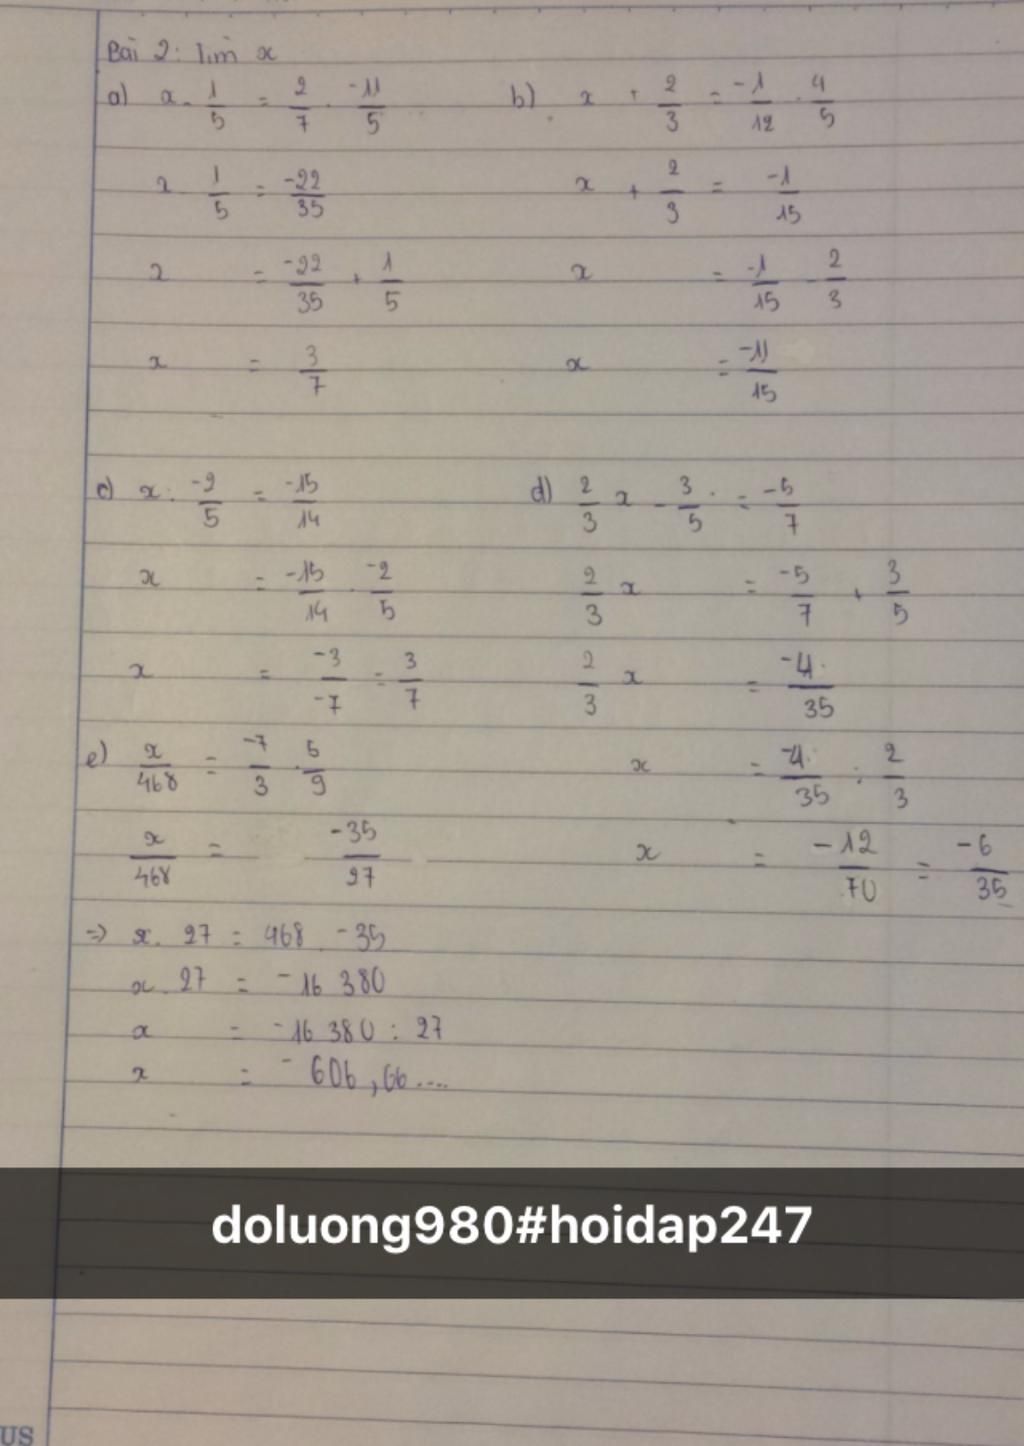 Bài 2: Tìm x
a) x - 1/5 = 2/7 . -11/5
x - 1/5 = -22/35
x = -22/35 + 1/5
x = 3/7
b) x + 2/3 = -1/12 . 4/5
x + 2/3 = -1/15
x = -1/15 - 2/3
x = -11/15
c) x : -2/5 = -15/14
x = -15/14 . -2/5
x = -3/-7 = 3/7
d) 2/3 x - 3/5 = -5/7
2/3 x = -5/7 + 3/5
2/3 x = -4/35
x = -4/35 : 2/3
x = -12/70 = -6/35
e) x/468 = -7/3 . 5/9
x/468 = -35/27
=> x . 27 = 468 . -35
x . 27 = -16 380
x = -16 380 : 27
x = -606,66....
doluong980#hoidap247
US